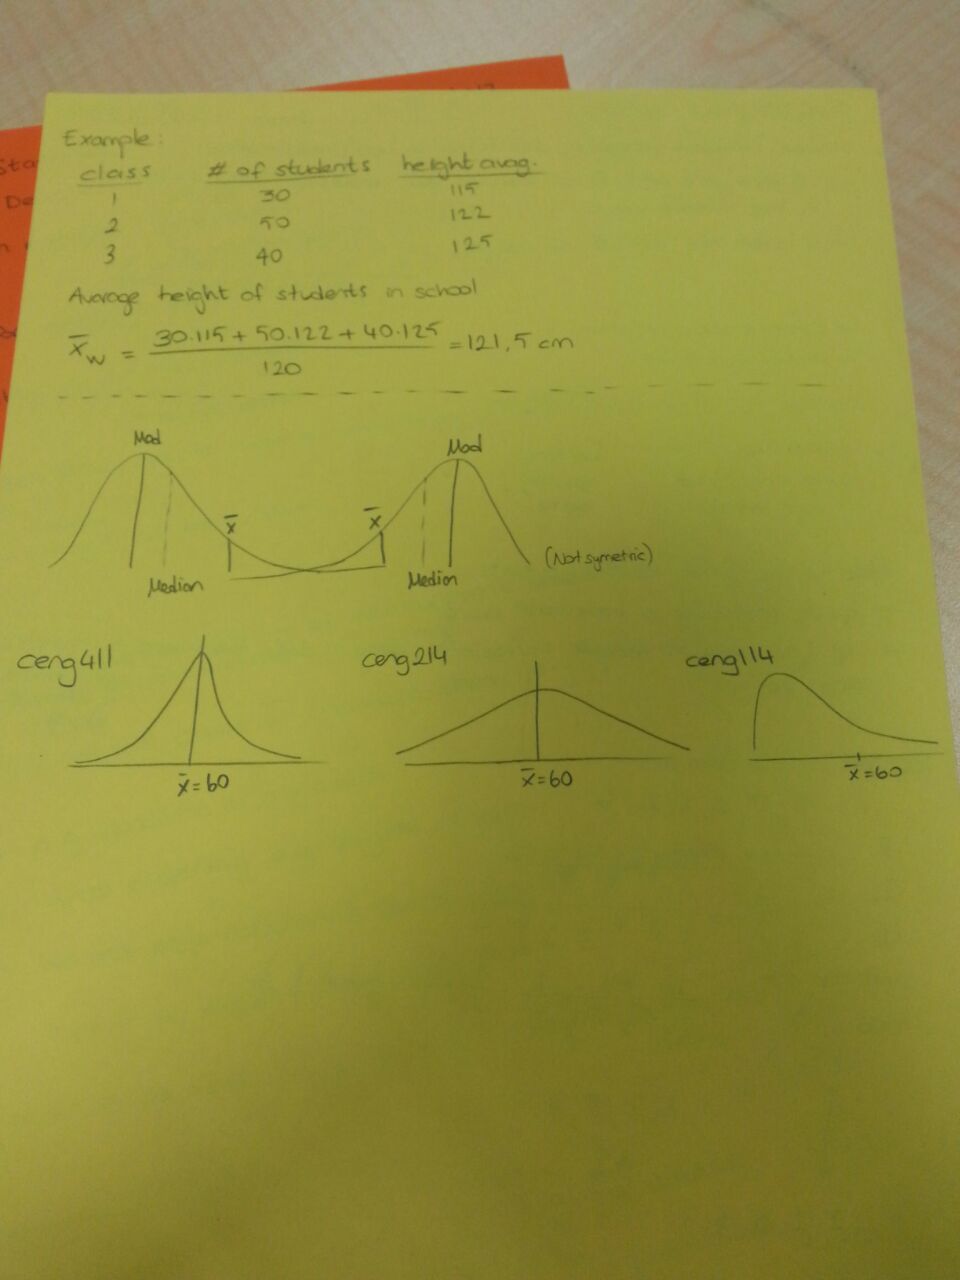 Example:
class # of students height avag.
1 30 115
2 50 122
3 40 125
Avarage height of students in school
x̄w = 30.115 + 50.122 + 40.125 / 120 = 121,5 cm
Mod Mod
x̄ x̄
Median Median (Not symetric)
ceng411 ceng214 ceng114
x̄=60 x̄=60 x̄=60
Sta
De